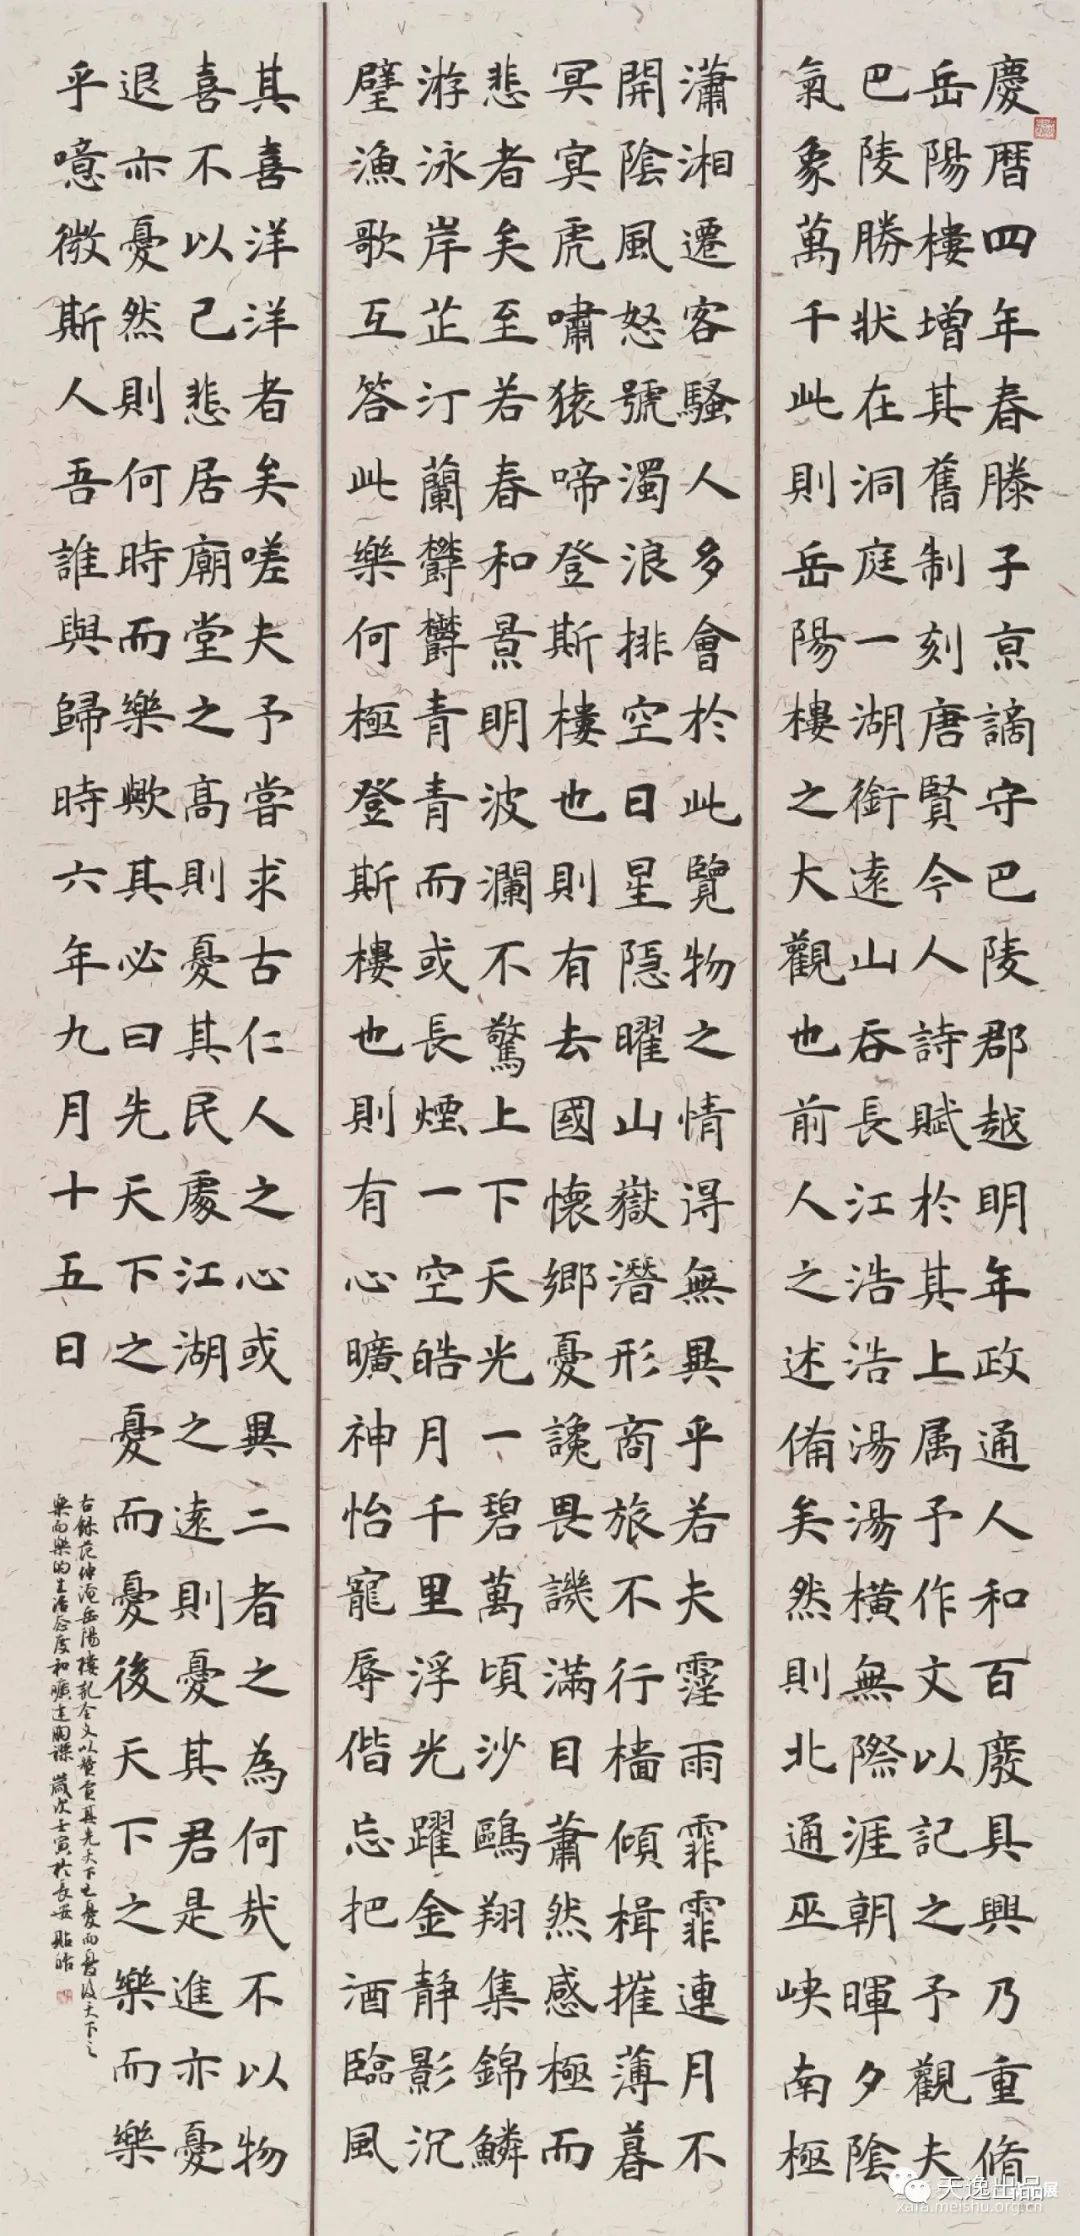 慶暦四年春滕子亰謫守巴陵郡越明年政通人和百廢具興乃重脩
岳陽樓增其舊制刻唐賢今人詩賦於其上属予作文以記之予觀夫
巴陵勝狀在洞庭一湖銜遠山吞長江浩浩湯湯橫無際涯朝暉夕陰
氣象萬千此則岳陽樓之大觀也前人之述備矣然則北通巫峽南極
瀟湘遷客騷人多會於此覽物之情得無異乎若夫霪雨霏霏連月不
開陰風怒號濁浪排空日星隱曜山嶽潛形商旅不行檣傾楫摧薄暮
冥冥虎嘯猿啼登斯樓也則有去國懷鄉憂讒畏譏滿目蕭然感極而
悲者矣至若春和景明波瀾不驚上下天光一碧萬頃沙鷗翔集錦鱗
游泳岸芷汀蘭欝欝青青而或長煙一空皓月千里浮光躍金靜影沉
璧漁歌互答此樂何極登斯樓也則有心曠神怡寵辱偕忘把酒臨風
其喜洋洋者矣嗟夫予嘗求古仁人之心或異二者之為何哉不以物
喜不以己悲居廟堂之高則憂其民處江湖之遠則憂其君是進亦憂
退亦憂然則何時而樂歟其必曰先天下之憂而憂後天下之樂而樂
乎噫微斯人吾誰與歸時六年九月十五日
右錄范仲淹岳陽樓記全文以贊賞其先天下之憂而憂後天下之
樂而樂的生活态度和曠達胸襟 歲次壬寅於長安
天逸出品
xafa.meishu.org.cn